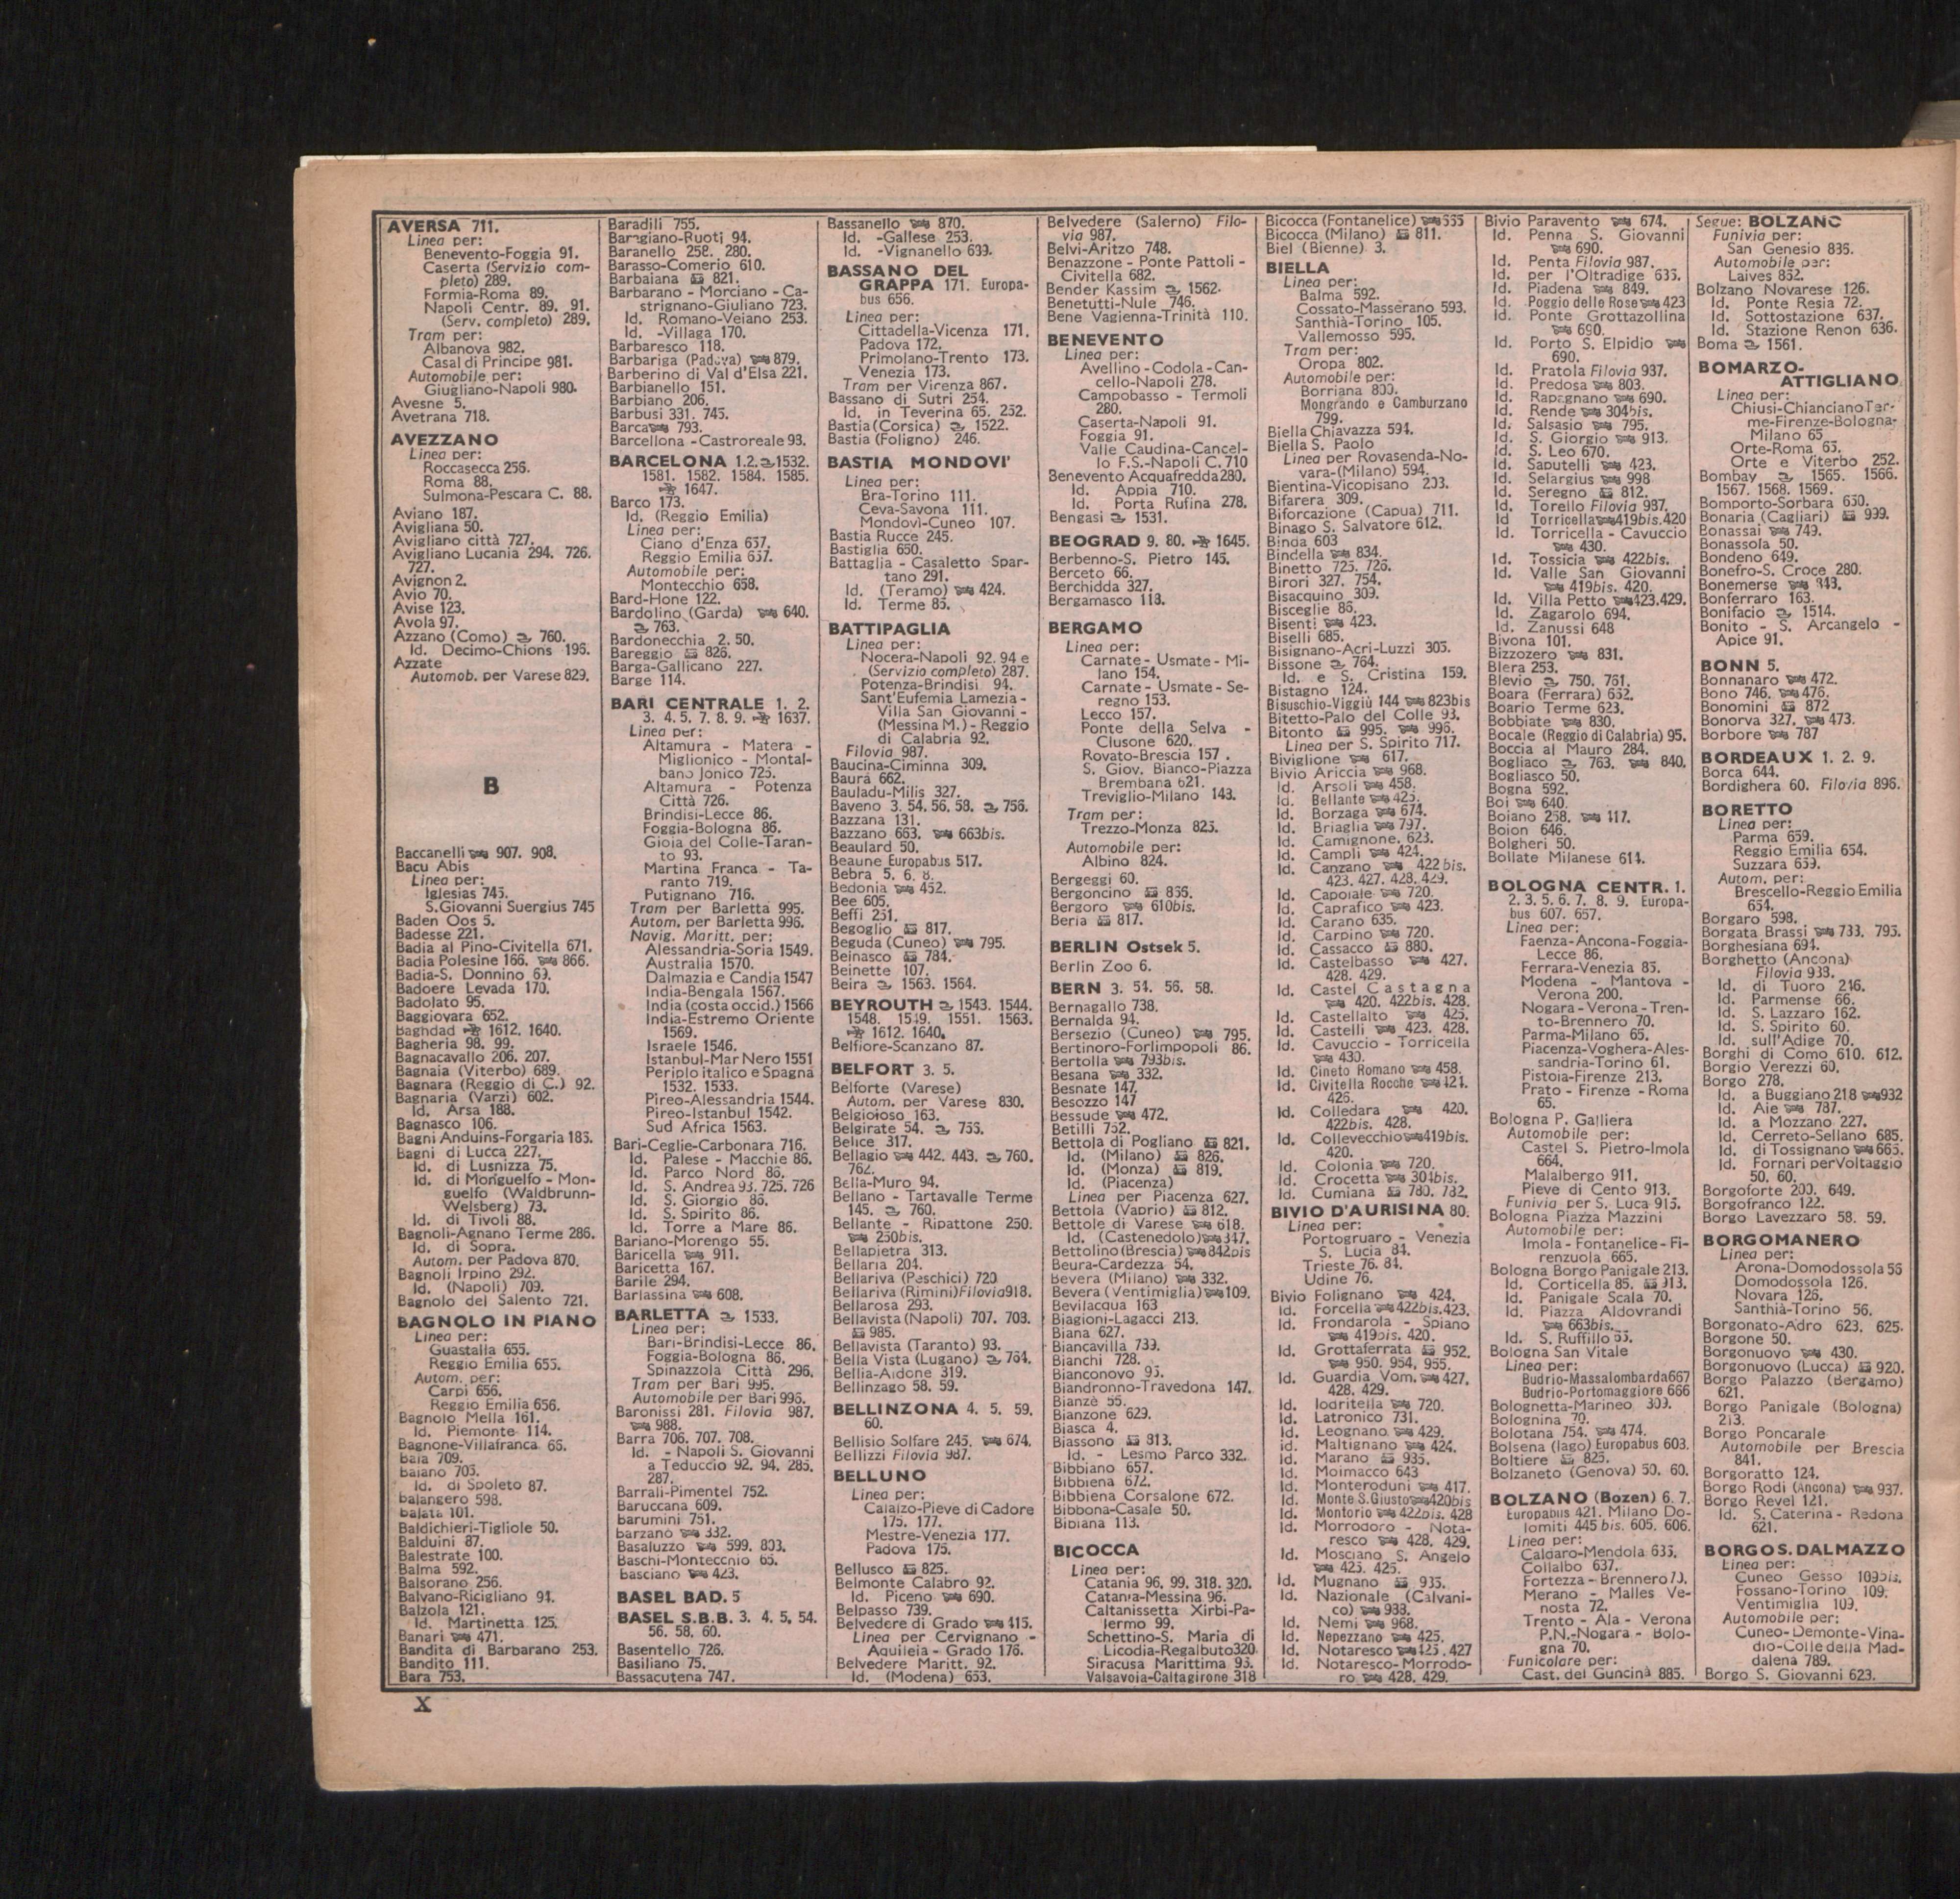 AVERSA 711.
Linea per:
Benevento-Foggia 91.
Caserta (Servizio com-
pleto) 289.
Formia-Roma 89.
Napoli Centr. 89. 91.
(Serv. completo) 289.
Tram per:
Albanova 982.
Casal di Principe 981.
Automobile per:
Giugliano-Napoli 980.
Avesne 5.
Avetrana 718.
AVEZZANO
Linea per:
Roccasecca 256.
Roma 88.
Sulmona-Pescara C. 88.
Aviano 187.
Avigliana 50.
Avigliano città 727.
Avigliano Lucania 294. 726.
727.
Avignon 2.
Avio 70.
Avise 123.
Avola 97.
Azzano (Como) 760.
Id. Decimo-Chions 196.
Azzate
Automob. per Varese 829.
B
Baccanelli 907. 908.
Bacu Abis
Linea per:
Iglesias 745.
S. Giovanni Suergius 745
Baden Oos 5.
Badesse 221.
Badia al Pino-Civitella 671.
Badia Polesine 166. 866.
Badia-S. Donnino 69.
Badoere Levada 170.
Badolato 95.
Baggiovara 652.
Baghdad 1612. 1640.
Bagheria 98. 99.
Bagnacavallo 206. 207.
Bagnaia (Viterbo) 689.
Bagnara (Reggio di C.) 92.
Bagnaria (Varzi) 602.
Id. Arsa 188.
Bagnasco 106.
Bagni Anduins-Forgaria 185.
Bagni di Lucca 227.
Id. di Lusnizza 75.
Id. di Monguelfo - Mon-
guelfo (Waldbrunn-
Welsberg) 73.
Id. di Tivoli 88.
Bagnoli-Agnano Terme 286.
Id. di Sopra.
Autom. per Padova 870.
Bagnoli Irpino 292.
Id. (Napoli) 709.
Bagnolo del Salento 721.
BAGNOLO IN PIANO
Linea per:
Guastalla 655.
Reggio Emilia 655.
Autom. per:
Carpi 656.
Reggio Emilia 656.
Bagnolo Mella 161.
Id. Piemonte 114.
Bagnone-Villafranca 66.
Baia 709.
Baiano 705.
Id. di Spoleto 87.
Balangero 598.
Balata 101.
Baldichieri-Tigliole 50.
Balduini 87.
Balestrate 100.
Balma 592.
Balsorano 256.
Balvano-Ricigliano 94.
Balzola 121.
Id. Martinetta 125.
Banari 471.
Bandita di Barbarano 253.
Bandito 111.
Bara 753.
Baradili 755.
Baragiano-Ruoti 94.
Baranello 258. 280.
Barasso-Comerio 610.
Barbaiana 821.
Barbarano - Morciano - Ca-
strignano-Giuliano 723.
Id. Romano-Veiano 253.
Id. -Villaga 170.
Barbaresco 118.
Barbariga (Padova) 879.
Barberino di Val d'Elsa 221.
Barbianello 151.
Barbiano 206.
Barbusi 331. 745.
Barca 793.
Barcellona - Castroreale 93.
BARCELONA 1.2. 1532.
1581. 1582. 1584. 1585.
1647.
Barco 173.
Id. (Reggio Emilia)
Linea per:
Ciano d'Enza 657.
Reggio Emilia 657.
Automobile per:
Montecchio 658.
Bard-Hone 122.
Bardolino (Garda) 640.
763.
Bardonecchia 2. 50.
Bareggio 826.
Barga-Gallicano 227.
Barge 114.
BARI CENTRALE 1. 2.
3. 4. 5. 7. 8. 9. 1637.
Linea per:
Altamura - Matera -
Miglionico - Montal-
bano Jonico 725.
Altamura - Potenza
Città 726.
Brindisi-Lecce 86.
Foggia-Bologna 86.
Gioia del Colle-Taran-
to 93.
Martina Franca - Ta-
ranto 719.
Putignano 716.
Tram per Barletta 995.
Autom. per Barletta 996.
Navig. Maritt. per:
Alessandria-Soria 1549.
Australia 1570.
Dalmazia e Candia 1547
India-Bengala 1567.
India (costa occid.) 1566
India-Estremo Oriente
1569.
Israele 1546.
Istanbul-Mar Nero 1551
Periplo italico e Spagna
1532. 1533.
Pireo-Alessandria 1544.
Pireo-Istanbul 1542.
Sud Africa 1563.
Bari-Ceglie-Carbonara 716.
Id. Palese - Macchie 86.
Id. Parco Nord 86.
Id. S. Andrea 93. 725. 726
Id. S. Giorgio 86.
Id. S. Spirito 86.
Id. Torre a Mare 86.
Bariano-Morengo 55.
Baricella 911.
Baricetta 167.
Barile 294.
Barlassina 608.
BARLETTA 1533.
Linea per:
Bari-Brindisi-Lecce 86.
Foggia-Bologna 86.
Spinazzola Città 296.
Tram per Bari 995.
Automobile per Bari 996.
Baronissi 281. Filovia 987.
988.
Barra 706. 707. 708.
Id. - Napoli S. Giovanni
a Teduccio 92. 94. 285.
287.
Barrali-Pimentel 752.
Baruccana 609.
Barumini 751.
Barzanò 332.
Basaluzzo 599. 803.
Baschi-Montecchio 65.
Basciano 423.
BASEL BAD. 5
BASEL S.B.B. 3. 4. 5. 54.
56. 58. 60.
Basentello 726.
Basiliano 75.
Bassacutena 747.
Bassanello 870.
Id. -Gallese 253.
Id. -Vignanello 699.
BASSANO DEL
GRAPPA 171. Europa-
bus 656.
Linea per:
Cittadella-Vicenza 171.
Padova 172.
Primolano-Trento 173.
Venezia 173.
Tram per Virenza 867.
Bassano di Sutri 254.
Id. in Teverina 65. 252.
Bastia (Corsica) 1522.
Bastia (Foligno) 246.
BASTIA MONDOVI'
Linea per:
Bra-Torino 111.
Ceva-Savona 111.
Mondovì-Cuneo 107.
Bastia Rucce 245.
Bastiglia 650.
Battaglia - Casaletto Spar-
tano 291.
Id. (Teramo) 424.
Id. Terme 85.
BATTIPAGLIA
Linea per:
Nocera-Napoli 92. 94 e
(Servizio completo) 287.
Potenza-Brindisi 94.
Sant'Eufemia Lamezia -
Villa San Giovanni -
(Messina M.) - Reggio
di Calabria 92.
Filovia 987.
Baucina-Ciminna 309.
Baura 662.
Bauladu-Milis 327.
Baveno 3. 54. 56. 58. 756.
Bazzana 131.
Bazzano 663. 663bis.
Beaulard 50.
Beaune Europabus 517.
Bebra 5. 6. 8.
Bedonia 452.
Bee 605.
Beffi 251.
Begoglio 817.
Beguda (Cuneo) 795.
Beinasco 784.
Beinette 107.
Beira 1563. 1564.
BEYROUTH 1543. 1544.
1548. 1549. 1551. 1563.
1612. 1640.
Belfiore-Scanzano 87.
BELFORT 3. 5.
Belforte (Varese)
Autom. per Varese 830.
Belgioioso 163.
Belgirate 54. 756.
Belice 317.
Bellagio 442. 443. 760.
762.
Bella-Muro 94.
Bellano - Tartavalle Terme
145. 760.
Bellante - Ripattone 250.
250bis.
Bellapietra 313.
Bellaria 204.
Bellariva (Peschici) 720
Bellariva (Rimini) Filovia 918.
Bellarosa 293.
Bellavista (Napoli) 707. 708.
985.
Bellavista (Taranto) 93.
Bella Vista (Lugano) 764.
Bellia-Aidone 319.
Bellinzago 58. 59.
BELLINZONA 4. 5. 59.
60.
Bellisio Solfare 245. 674.
Bellizzi Filovia 987.
BELLUNO
Linea per:
Calalzo-Pieve di Cadore
175. 177.
Mestre-Venezia 177.
Padova 175.
Bellusco 825.
Belmonte Calabro 92.
Id. Piceno 690.
Belpasso 739.
Belvedere di Grado 415.
Linea per Cervignano -
Aquileia - Grado 176.
Belvedere Maritt. 92.
Id. (Modena) 653.
Belvedere (Salerno) Filo-
via 987.
Belvì-Aritzo 748.
Benazzone - Ponte Pattoli -
Civitella 682.
Bender Kassim 1562.
Benetutti-Nule 746.
Bene Vagienna-Trinità 110.
BENEVENTO
Linea per:
Avellino - Codola - Can-
cello-Napoli 278.
Campobasso - Termoli
280.
Caserta-Napoli 91.
Foggia 91.
Valle Caudina-Cancel-
lo F.S.-Napoli C. 710
Benevento Acquafredda 280.
Id. Appia 710.
Id. Porta Rufina 278.
Bengasi 1531.
BEOGRAD 9. 80. 1645.
Berbenno-S. Pietro 145.
Berceto 66.
Berchidda 327.
Bergamasco 118.
BERGAMO
Linea per:
Carnate - Usmate - Mi-
lano 154.
Carnate - Usmate - Se-
regno 153.
Lecco 157.
Ponte della Selva -
Clusone 620.
Rovato-Brescia 157.
S. Giov. Bianco-Piazza
Brembana 621.
Treviglio-Milano 143.
Tram per:
Trezzo-Monza 825.
Automobile per:
Albino 824.
Bergeggi 60.
Bergoncino 856.
Bergoro 610bis.
Beria 817.
BERLIN Ostsek 5.
Berlin Zoo 6.
BERN 3. 54. 56. 58.
Bernagallo 738.
Bernalda 94.
Bersezio (Cuneo) 795.
Bertinoro-Forlimpopoli 86.
Bertolla 793bis.
Besana 332.
Besnate 147
Besozzo 147
Bessude 472.
Betilli 752.
Bettola di Pogliano 821.
Id. (Milano) 826.
Id. (Monza) 819.
Id. (Piacenza)
Linea per Piacenza 627.
Bettola (Vaprio) 812.
Bettole di Varese 618.
Id. (Castenedolo) 847.
Bettolino (Brescia) 842bis
Beura-Cardezza 54.
Bevera (Milano) 332.
Bevera (Ventimiglia) 109.
Bevilacqua 163
Biagioni-Lagacci 213.
Biana 627.
Biancavilla 739.
Bianchi 728.
Bianconovo 95.
Biandronno-Travedona 147.
Bianzè 55.
Bianzone 629.
Biasca 4.
Biassono 813.
Id. - Lesmo Parco 332.
Bibbiano 657.
Bibbiena 672.
Bibbiena Corsalone 672.
Bibbona-Casale 50.
Bibiana 113.
BICOCCA
Linea per:
Catania 96. 99. 318. 320.
Catania-Messina 96.
Caltanissetta Xirbi-Pa-
lermo 99.
Schettino-S. Maria di
Licodia-Regalbuto 320.
Siracusa Marittima 96.
Valsavoia-Caltagirone 318
Bicocca (Fontanelice) 665
Bicocca (Milano) 811.
Biel (Bienne) 3.
BIELLA
Linea per:
Balma 592.
Cossato-Masserano 593.
Santhià-Torino 105.
Vallemosso 595.
Tram per:
Oropa 802.
Automobile per:
Borriana 800.
Mongrando e Camburzano
799.
Biella Chiavazza 594.
Biella S. Paolo
Linea per Rovasenda-No-
vara-(Milano) 594.
Bientina-Vicopisano 203.
Bifarera 309.
Biforcazione (Capua) 711.
Binago S. Salvatore 612.
Binda 603
Bindella 834.
Binetto 725. 726.
Birori 327. 754.
Bisacquino 309.
Bisceglie 86.
Bisenti 423.
Biselli 685.
Bisignano-Acri-Luzzi 305.
Bissone 764.
Id. e S. Cristina 159.
Bistagno 124.
Bisuschio-Viggiù 144 823bis
Bitetto-Palo del Colle 93.
Bitonto 995. 996.
Linea per S. Spirito 717.
Biviglione 617.
Bivio Ariccia 968.
Id. Arsoli 458.
Id. Bellante 425.
Id. Borzaga 674.
Id. Briaglia 797.
Id. Camignone. 623.
Id. Campli 424.
Id. Canzano 422bis.
423. 427. 428. 429.
Id. Capoiale 720.
Id. Caprafico 423.
Id. Carano 635.
Id. Carpino 720.
Id. Cassacco 880.
Id. Castelbasso 427.
428. 429.
Id. Castel Castagna
420. 422bis. 428.
Id. Castellalto 425.
Id. Castelli 423. 428.
Id. Cavuccio - Torricella
430.
Id. Cineto Romano 458.
Id. Civitella Rocche 421.
426.
Id. Colledara 420.
422bis. 428.
Id. Collevecchio 419bis.
420.
Id. Colonia 720.
Id. Crocetta 304bis.
Id. Cumiana 780. 782.
BIVIO D'AURISINA 80.
Linea per:
Portogruaro - Venezia
S. Lucia 84.
Trieste 76. 84.
Udine 76.
Bivio Folignano 424.
Id. Forcella 422bis. 423.
Id. Frondarola - Spiano
419bis. 420.
Id. Grottaferrata 952.
950. 954. 955.
Id. Guardia Vom. 427.
428. 429.
Id. Ioaritella 720.
Id. Latronico 731.
Id. Leognano 429.
id. Maltignano 424.
Id. Marano 935.
Id. Moimacco 643
Id. Monteroduni 417.
Id. Monte S. Giusto 420bis
Id. Montorio 422bis. 428
Id. Morrodoro - Nota-
resco 428. 429.
Id. Mosciano S. Angelo
423. 425.
Id. Mugnano 935.
Id. Nazionale (Calvani-
co) 938.
Id. Nemi 968.
Id. Nepezzano 425.
Id. Notaresco 425. 427
Id. Notaresco-Morrodo-
ro 428. 429.
Bivio Paravento 674.
Id. Penna S. Giovanni
690.
Id. Penta Filovia 987.
Id. per l'Oltradige 635.
Id. Piadena 849.
Id. Poggio delle Rose 423
Id. Ponte Grottazollina
690.
Id. Porto S. Elpidio
690.
Id. Pratola Filovia 937.
Id. Predosa 803.
Id. Rapagnano 690.
Id. Rende 304bis.
Id. Salsasio 795.
Id. S. Giorgio 913.
Id. S. Leo 670.
Id. Saputelli 423.
Id. Selargius 998
Id. Seregno 812.
Id. Torello Filovia 987.
Id Torricella 419bis. 420
Id. Torricella - Cavuccio
430.
Id. Tossicia 422bis.
Id. Valle San Giovanni
419bis. 420.
Id. Villa Petto 423. 429.
Id. Zagarolo 694.
Id. Zanussi 648
Bivona 101.
Bizzozero 831.
Blera 253.
Blevio 750. 761.
Boara (Ferrara) 662.
Boario Terme 623.
Bobbiate 830.
Bocale (Reggio di Calabria) 95.
Boccia al Mauro 284.
Bogliaco 763. 840.
Bogliasco 50.
Bogna 592.
Boi 640.
Boiano 258. 117.
Boion 646.
Bolgheri 50.
Bollate Milanese 614.
BOLOGNA CENTR. 1.
2. 3. 5. 6. 7. 8. 9. Europa-
bus 607. 657.
Linea per:
Faenza-Ancona-Foggia-
Lecce 86.
Ferrara-Venezia 85.
Modena - Mantova -
Verona 200.
Nogara - Verona - Tren-
to-Brennero 70.
Parma-Milano 65.
Piacenza-Voghera-Ales-
sandria-Torino 61.
Pistoia-Firenze 213.
Prato - Firenze - Roma
65.
Bologna P. Galliera
Automobile per:
Castel S. Pietro-Imola
664.
Malalbergo 911.
Pieve di Cento 913.
Funivia per S. Luca 915.
Bologna Piazza Mazzini
Automobile per:
Imola - Fontanelice - Fi-
renzuola 665.
Bologna Borgo Panigale 213.
Id. Corticella 85. 913.
Id. Panigale Scala 70.
Id. Piazza Aldovrandi
663bis.
Id. S. Ruffillo 65.
Bologna San Vitale
Linea per:
Budrio-Massalombarda 667
Budrio-Portomaggiore 666
Bolognetta-Marineo 309.
Bolognina 70.
Bolotana 754. 474.
Bolsena (lago) Europabus 603.
Boltiere 825.
Bolzaneto (Genova) 50. 60.
BOLZANO (Bozen) 6. 7.
Europabus 421. Milano Do-
lomiti 445bis. 605. 606.
Linea per:
Caldaro-Mendola 635.
Collalbo 637.
Fortezza - Brennero 70.
Merano - Malles Ve-
nosta 72.
Trento - Ala - Verona
P.N.-Nogara - Bolo-
gna 70.
Funicolare per:
Cast. del Guncinà 885.
Segue: BOLZANO
Funivia per:
San Genesio 886.
Automobile per:
Laives 852.
Bolzano Novarese 126.
Id. Ponte Resia 72.
Id. Sottostazione 637.
Id. Stazione Renon 636.
Boma 1561.
BOMARZO-
ATTIGLIANO
Linea per:
Chiusi-Chianciano Ter-
me-Firenze-Bologna-
Milano 65
Orte-Roma 65.
Orte e Viterbo 252.
Bombay 1565. 1566.
1567. 1568. 1569.
Bomporto-Sorbara 650.
Bonaria (Cagliari) 999.
Bonassai 749.
Bonassola 50.
Bondeno 649.
Bonefro-S. Croce 280.
Bonemerse 843.
Bonferraro 163.
Bonifacio 1514.
Bonito - S. Arcangelo -
Apice 91.
BONN 5.
Bonnanaro 472.
Bono 746. 476.
Bonomini 872
Bonorva 327. 473.
Borbore 787
BORDEAUX 1. 2. 9.
Borca 644.
Bordighera 60. Filovia 896.
BORETTO
Linea per:
Parma 659.
Reggio Emilia 654.
Suzzara 659.
Autom. per:
Brescello-Reggio Emilia
654.
Borgaro 598.
Borgata Brassi 733. 795.
Borghesiana 694.
Borghetto (Ancona)
Filovia 933.
Id. di Tuoro 246.
Id. Parmense 66.
Id. S. Lazzaro 162.
Id. S. Spirito 60.
Id. sull'Adige 70.
Borghi di Como 610. 612.
Borgio Verezzi 60.
Borgo 278.
Id. a Buggiano 218 932
Id. Aie 787.
Id. a Mozzano 227.
Id. Cerreto-Sellano 685.
Id. di Tossignano 665.
Id. Fornari per Voltaggio
50. 60.
Borgoforte 200. 649.
Borgofranco 122.
Borgo Lavezzaro 58. 59.
BORGOMANERO
Linea per:
Arona-Domodossola 56
Domodossola 126.
Novara 126.
Santhià-Torino 56.
Borgonato-Adro 623. 625.
Borgone 50.
Borgonuovo 430.
Borgonuovo (Lucca) 920.
Borgo Palazzo (Bergamo)
621.
Borgo Panigale (Bologna)
213.
Borgo Poncarale
Automobile per Brescia
841.
Borgoratto 124.
Borgo Rodi (Ancona) 937.
Borgo Revel 121.
Id. S. Caterina - Redona
621.
BORGO S. DALMAZZO
Linea per:
Cuneo Gesso 109bis.
Fossano-Torino 109.
Ventimiglia 109.
Automobile per:
Cuneo-Demonte-Vina-
dio-Colle della Mad-
dalena 789.
Borgo S. Giovanni 623.
X